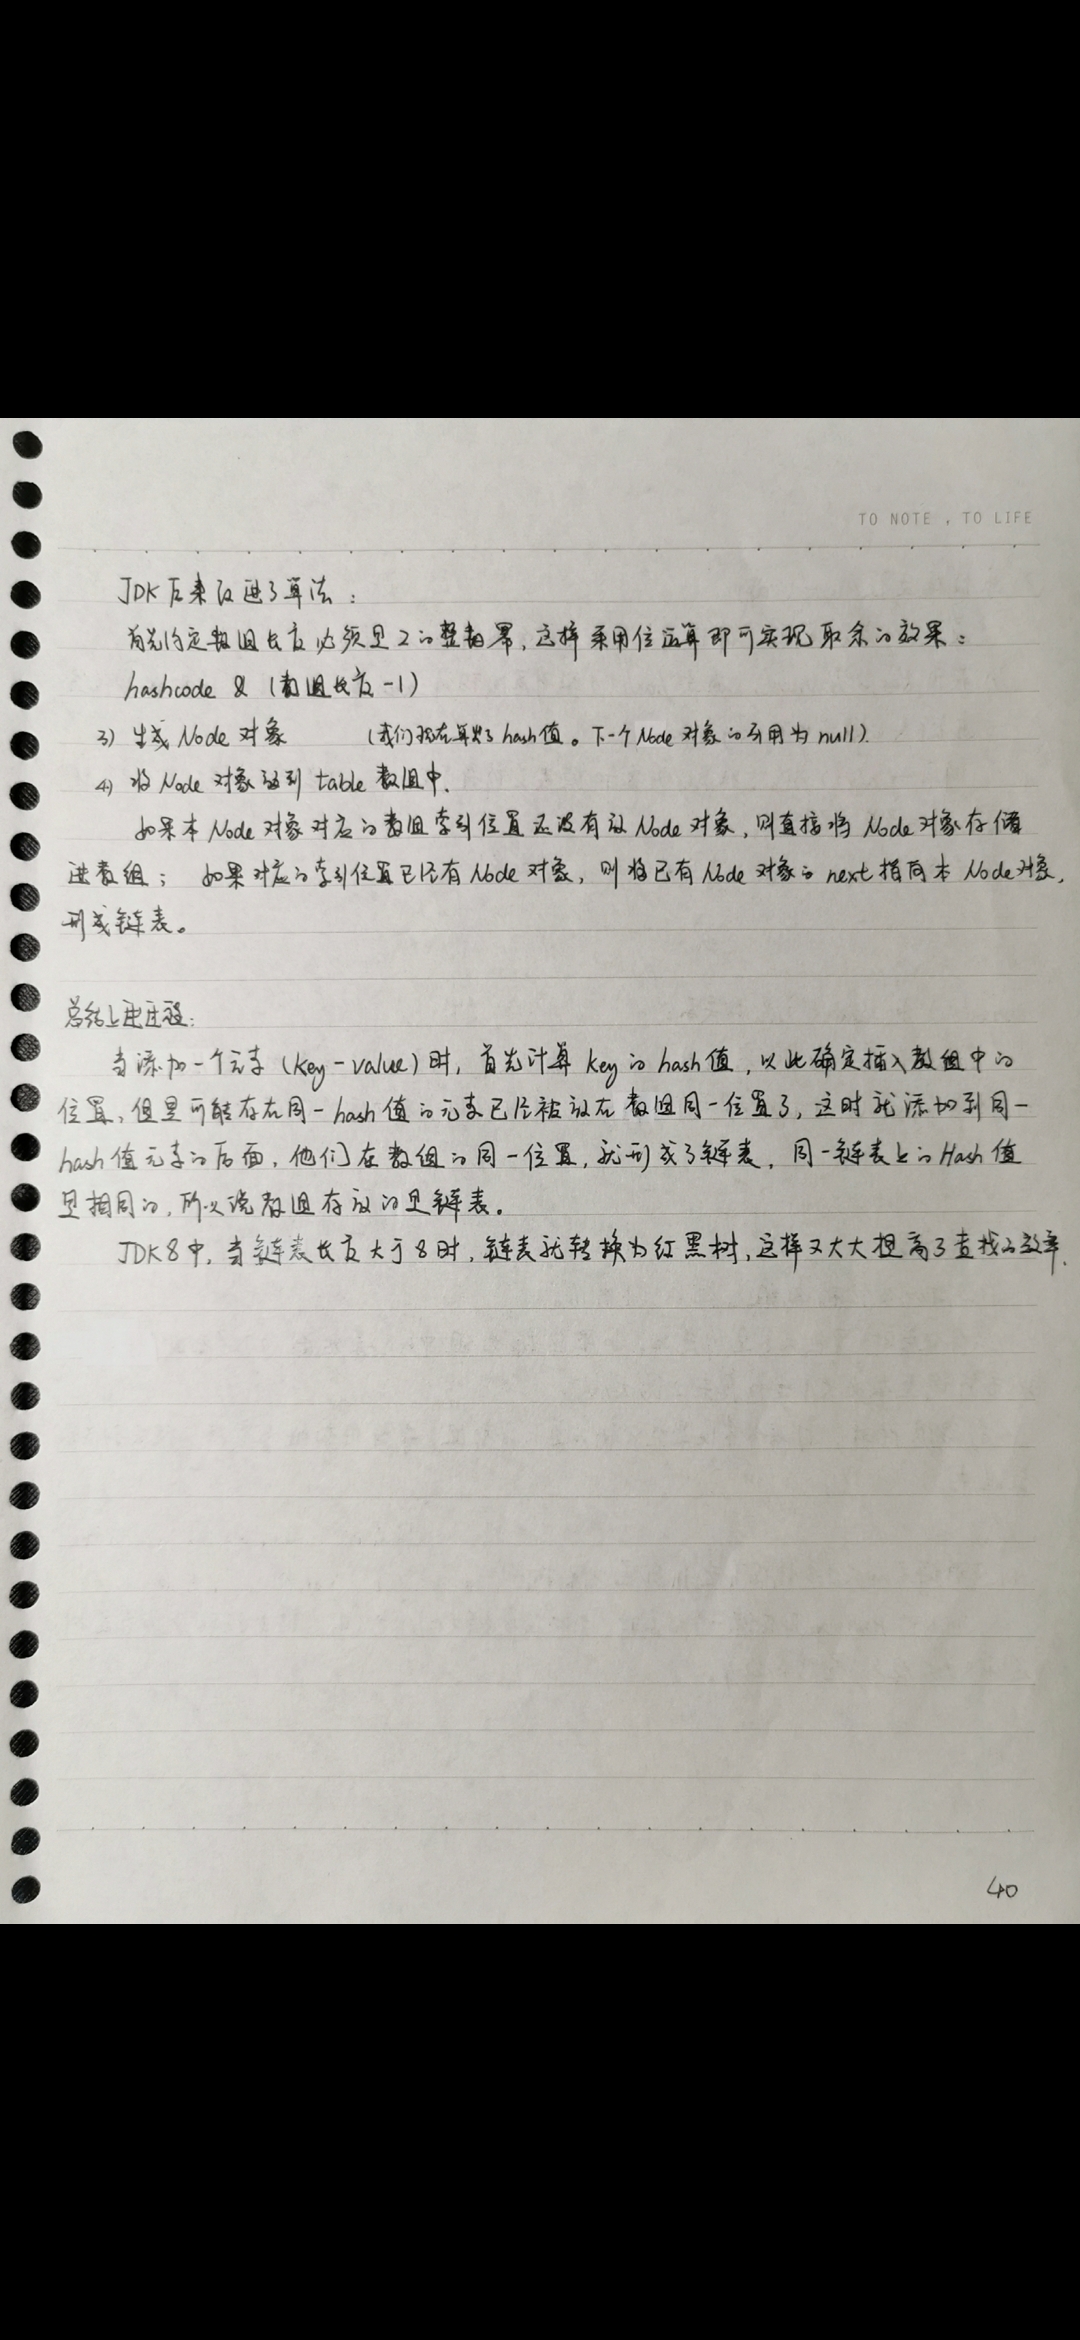 TO NOTE , TO LIFE
JDK后来改进了算法：
首先约定数组长度必须是2的整数幂，这样采用位运算即可实现取余的效果：
hashcode & (数组长度-1)
3) 生成Node对象 (我们现在算出了hash值。下一个Node对象的引用为null)
4) 将Node对象放到table数组中.
如果本Node对象对应的数组索引位置还没有放Node对象，则直接将Node对象存储
进数组；如果对应的索引位置已经有Node对象，则将已有Node对象的next指向本Node对象，
形成链表。
总结上述过程：
当添加一个元素(key-value)时，首先计算key的hash值，以此确定插入数组中的
位置，但是可能存在同一hash值的元素已经被放在数组同一位置了，这时就添加到同一
hash值元素的后面，他们在数组的同一位置，就形成了链表，同一链表上的Hash值
是相同的，所以说数组存放的是链表。
JDK8中，当链表长度大于8时，链表就转换为红黑树，这样又大大提高了查找的效率.
40